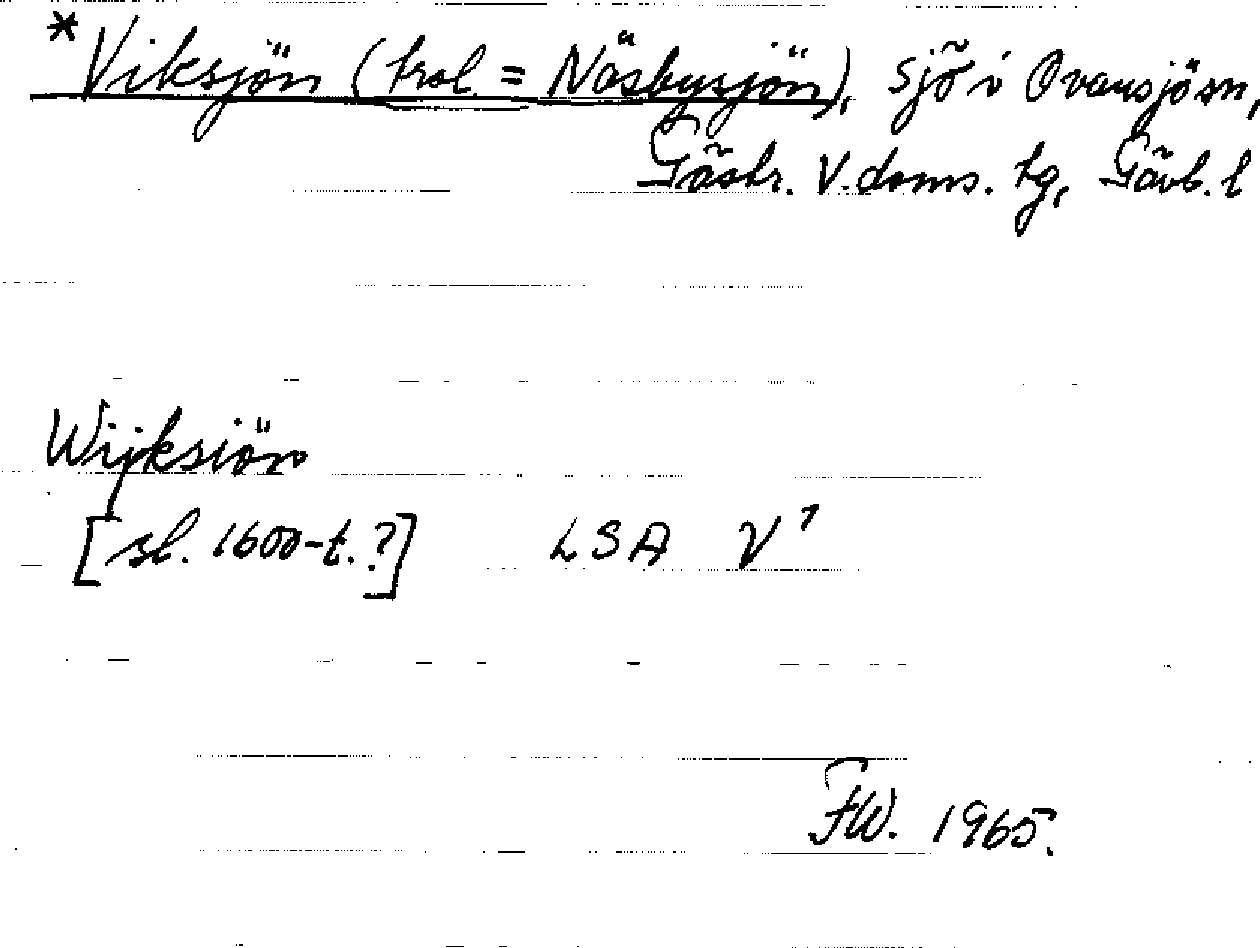 *Viksjön (trol. = Näsbysjön), sjö i Ovansjösn,
Gästr. V. doms. tg, Gävb. l
Wijksiön
[sl. 1600-t.?] LSA V 1
FW. 1965.